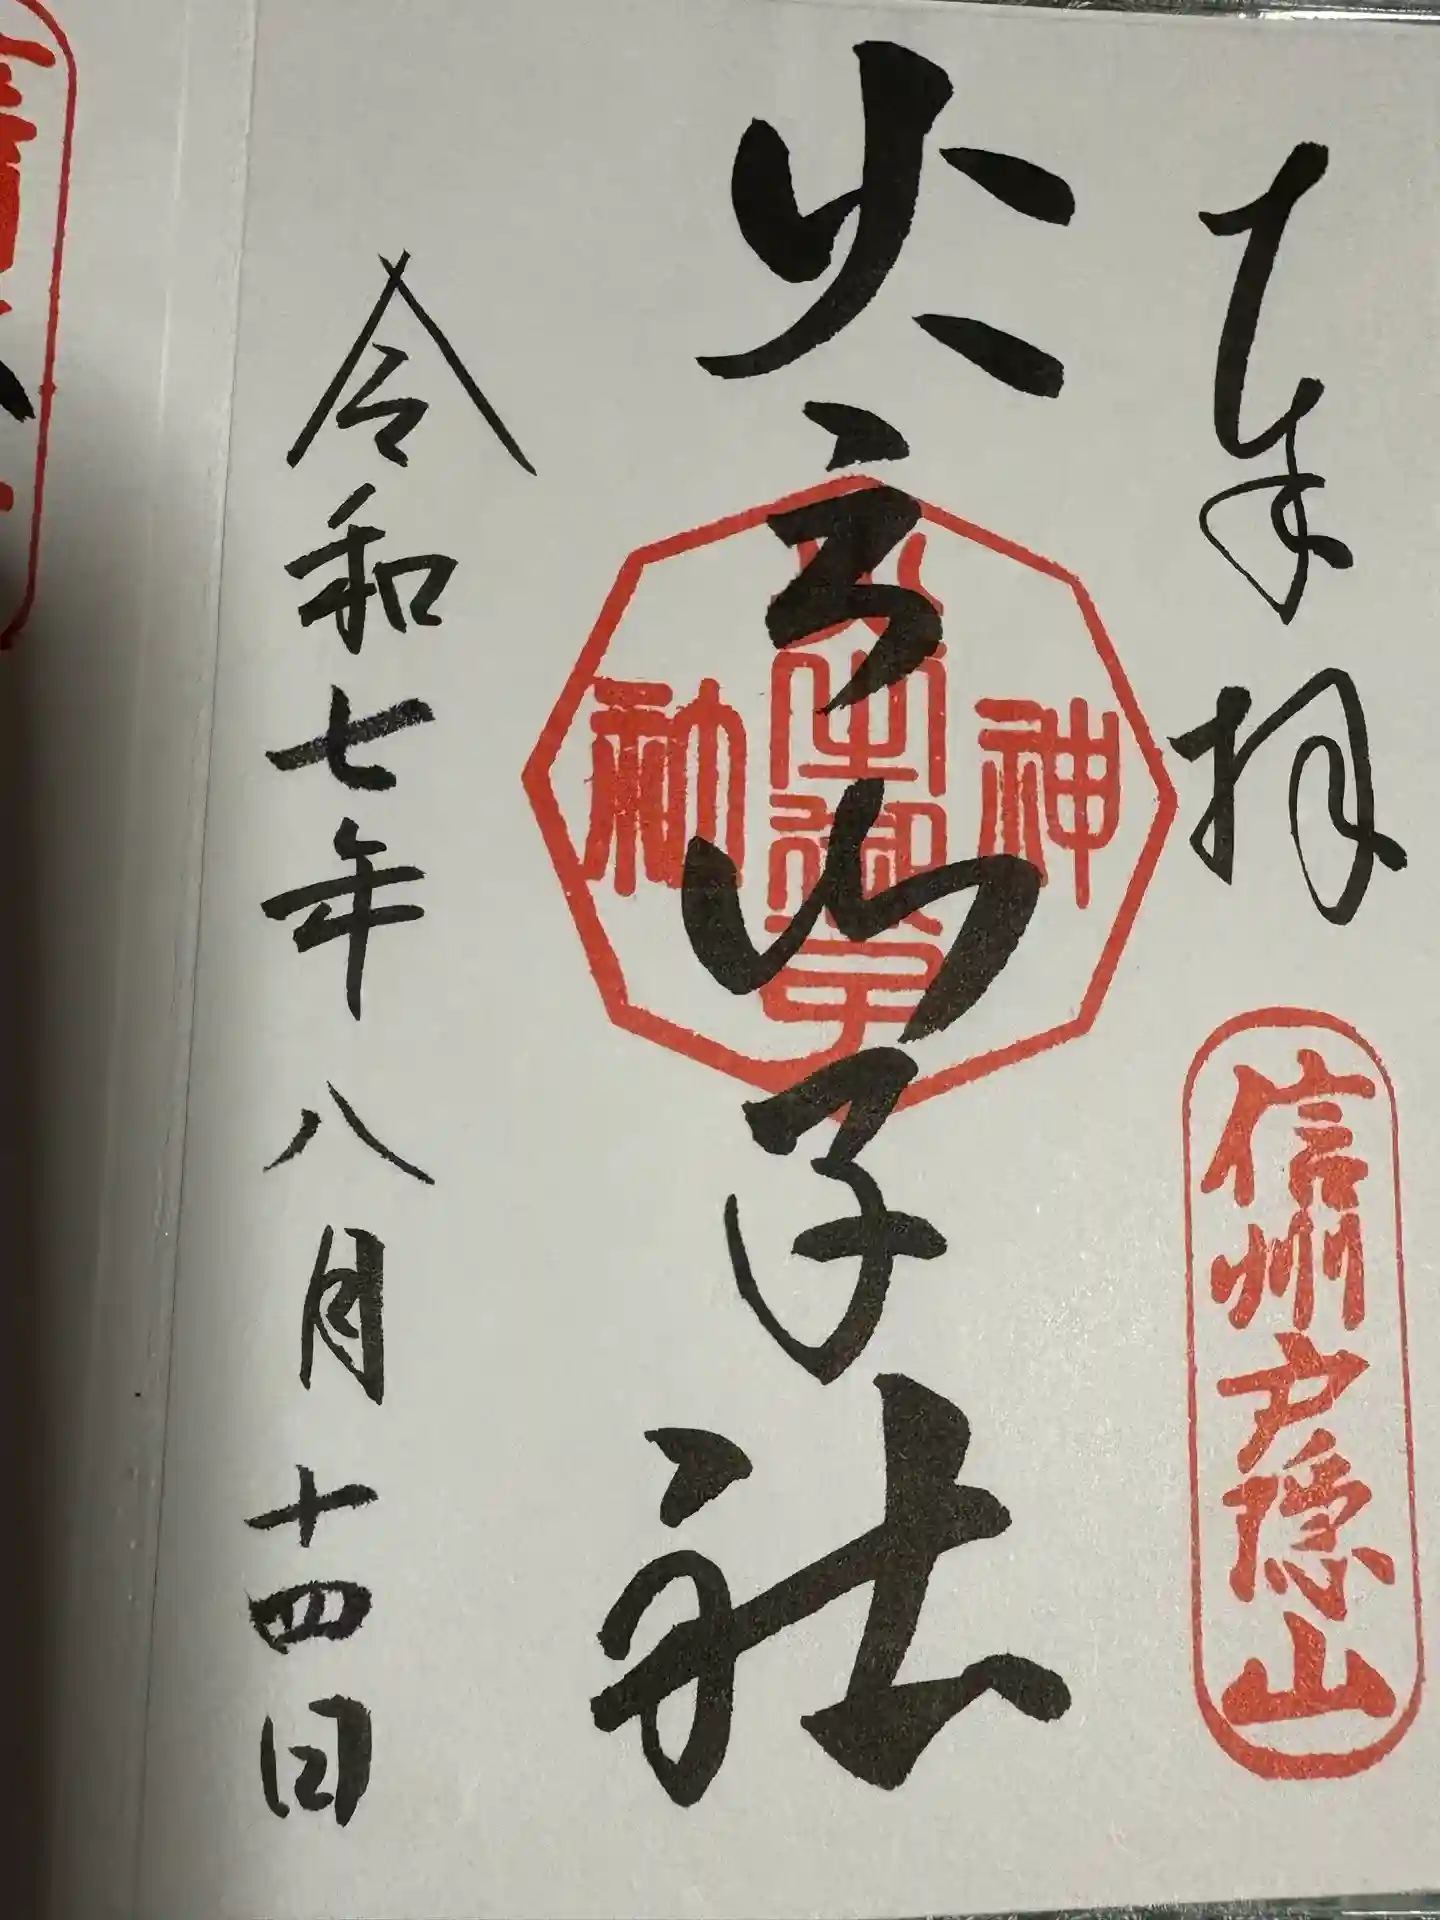 奉拝
信州戸隠山
火之御子社
神
火之御子
令和七年八月十四日